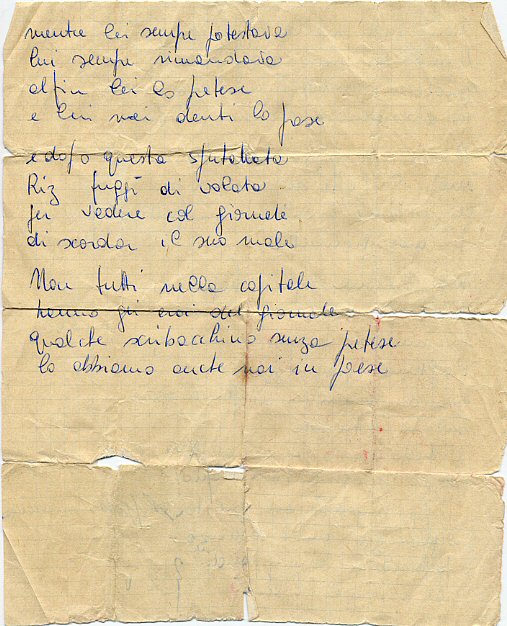 mentre lei sempre potestava
lui sempre rimandava
alfin lei lo petese
e lui nei denti lo pose
e dopo questa sputtanata
Riz fuggì di volata
per vedere col giornale
di scordar il suo male
Non tutti nella capitale
hanno gli eroi del giornale
qualche scribacchino senza petese
lo abbiamo anche noi in paese